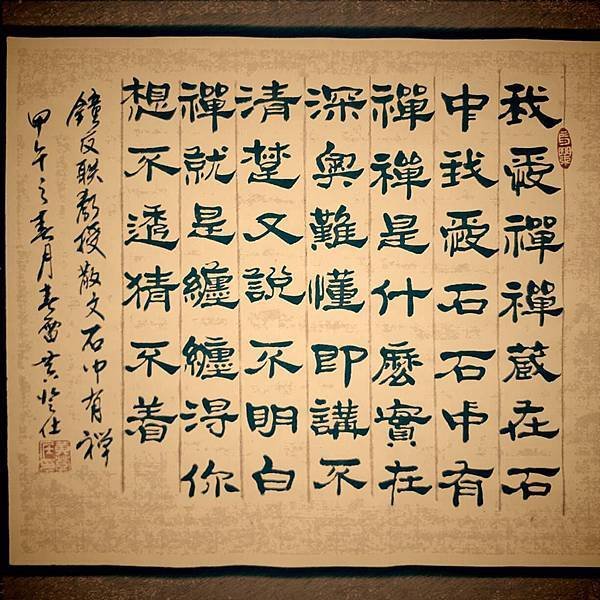 我愛禪禪藏在石
中我愛石石中有
禪禪是什麼實在
深奧難懂即講不
清楚又說不明白
禪就是纏纏得你
想不透猜不着
鐘友聯教授散文石中有禪
甲午之春月春雷